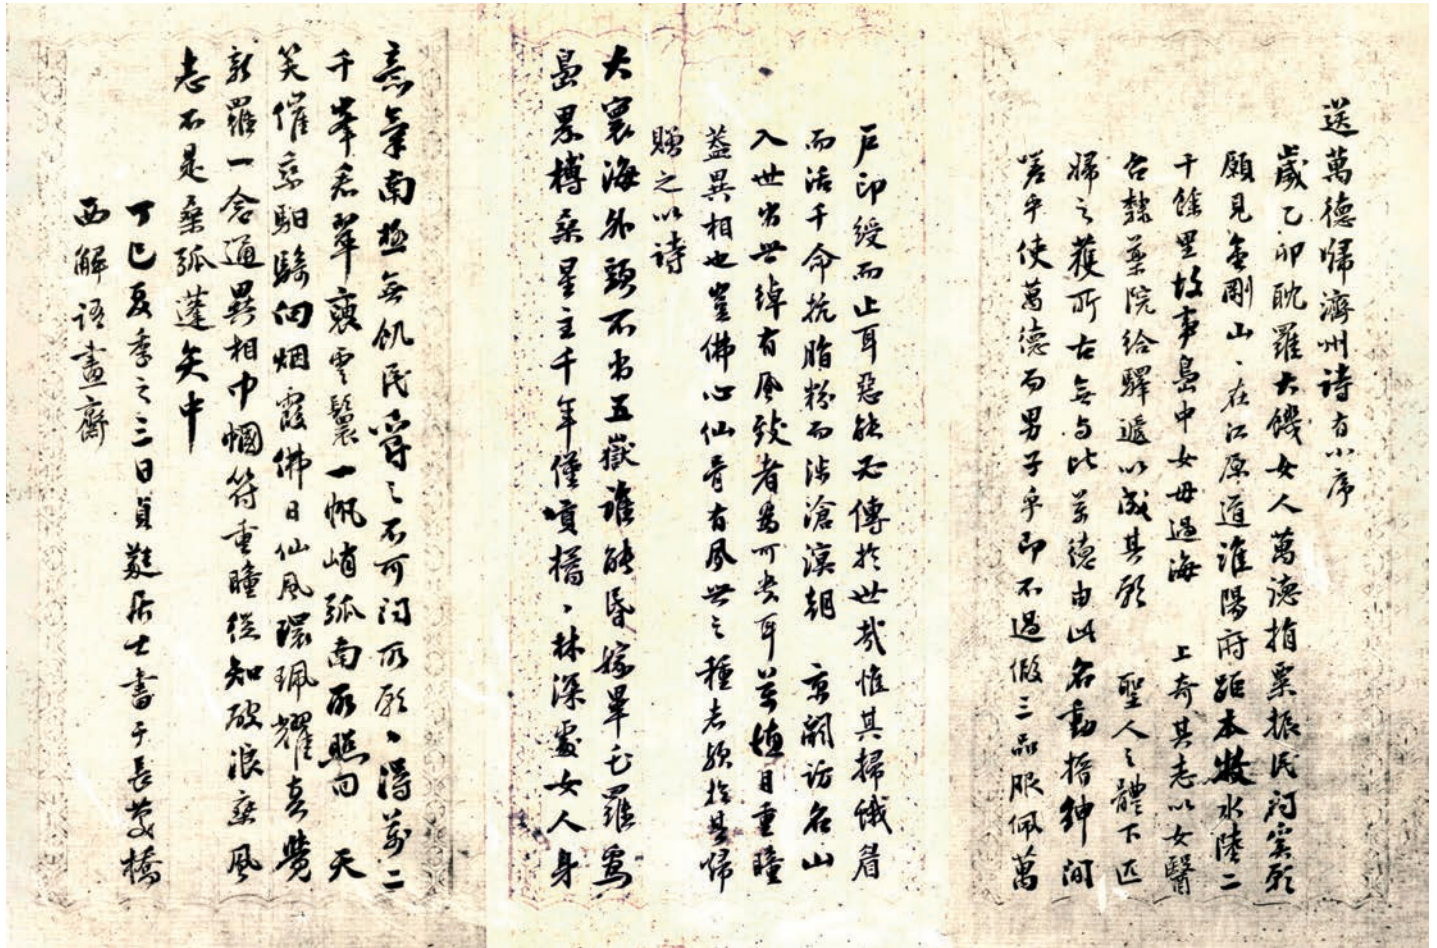 送萬德歸濟州詩有小序
歲乙卯耽羅大饑女人萬德捐粟振民問奚願
願見金剛山〻在江原道淮陽府距本牧水陸二
千餘里故事島中女毋過海 上奇其志以女醫
召隸藥院給驛遞以成其願 聖人之體下匹
婦之獲所古無與比萬德由此名動搢紳間
嗟乎使萬德而男子乎即不過假三品服佩萬
戶印綬而止耳惡能必傳於世哉惟其掃蛾眉
而活千命抗脂粉而涉滄溟朝 京闕訪名山
入世出世綽有風致者為可貴耳萬德目重瞳
蓋異相也豈佛心仙骨有夙世之種者歟於其歸
贈之以詩
大寰海外頭不出五嶽誰能昏嫁畢乇羅為
島累樽桑星主千年僅貢橘〻林深處女人身
意氣南極無飢民爵之不可問所願〻得萬二
千峯看翠褏雲鬟一帆峭孤南所照向 天
笑催乘馹騎向烟霞佛日仙風環珮耀真覺
新羅一念通異相巾幗符重瞳從知破浪乘風
志不是桑弧蓬矢中
丁巳夏季之三日貞蕤居士書于長慶橋
西解語畫齋